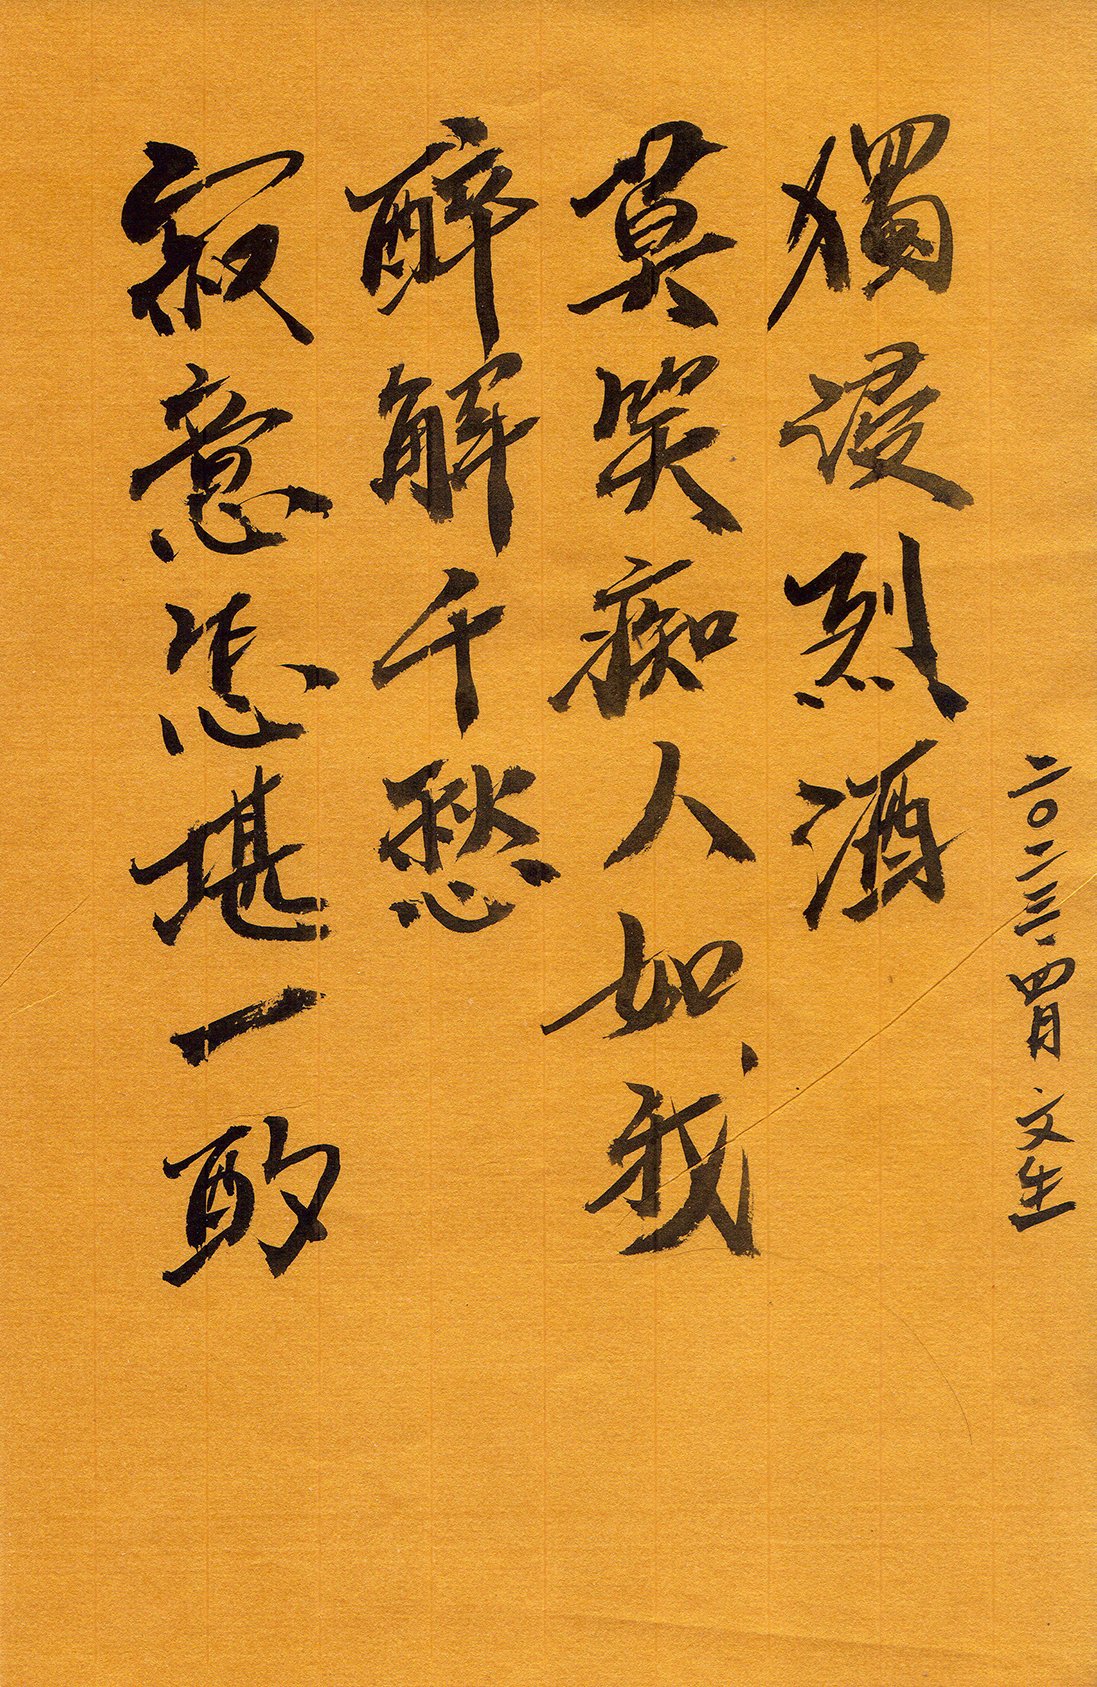 二〇二三.四月 文生
獨浸烈酒
莫笑痴人如我
醉解千愁
寂意怎堪一酌